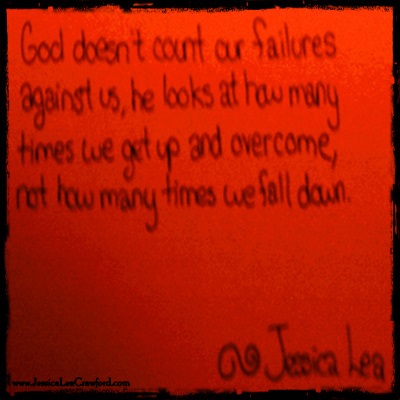 God doesn't count our failures
against us, he looks at how many
times we get up and overcome,
not how many times we fall down.
Jessica Lea
www.JessicaLeeCrawford.com